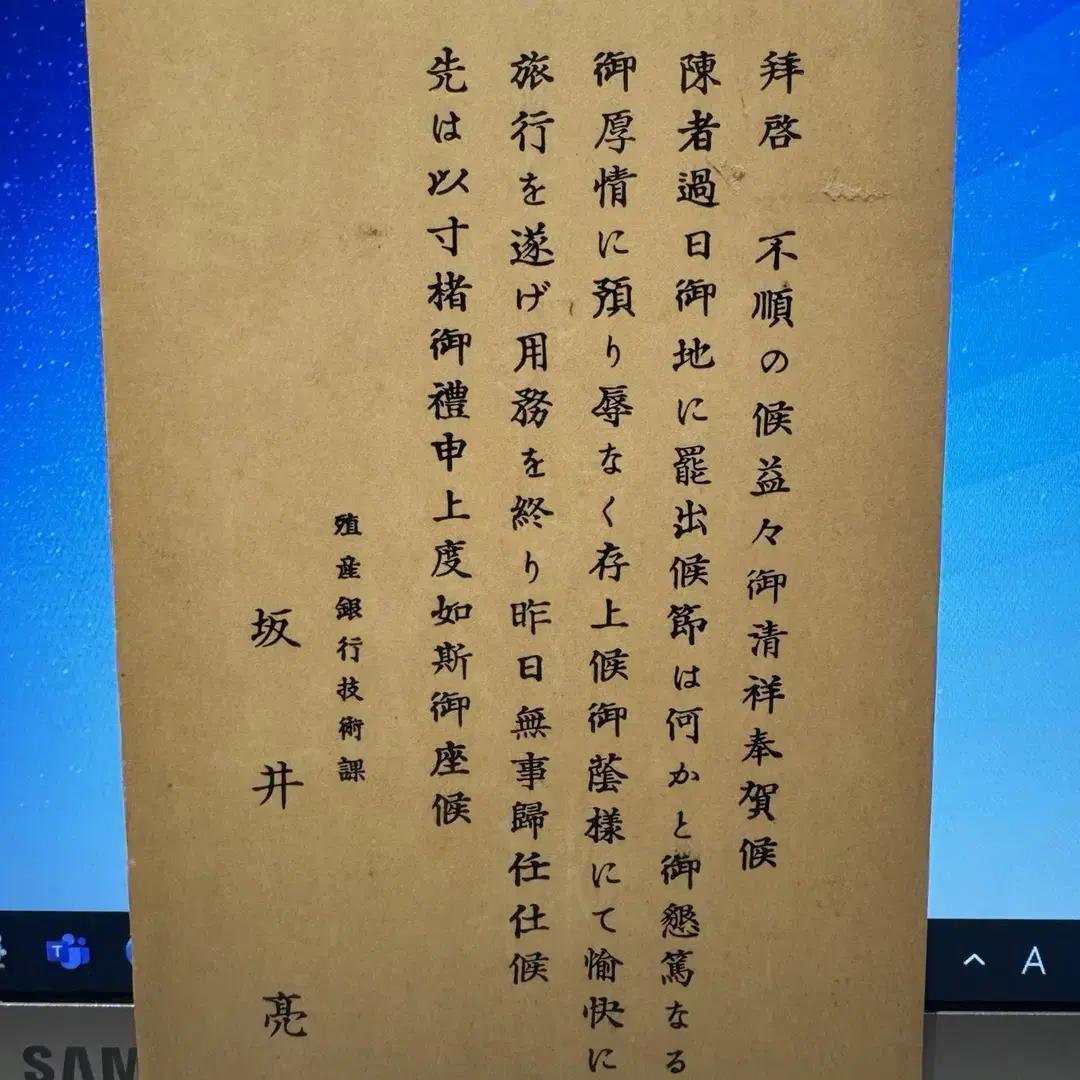 拜啓　不順の候益々御清祥奉賀候
陳者過日御地に罷出候節は何かと御懇篤なる
御厚情に預り辱なく存上候御蔭様にて愉快に
旅行を遂げ用務を終り昨日無事歸任仕候
先は以寸楮御禮申上度如斯御座候
殖産銀行技術課
坂井亮
A
SAM